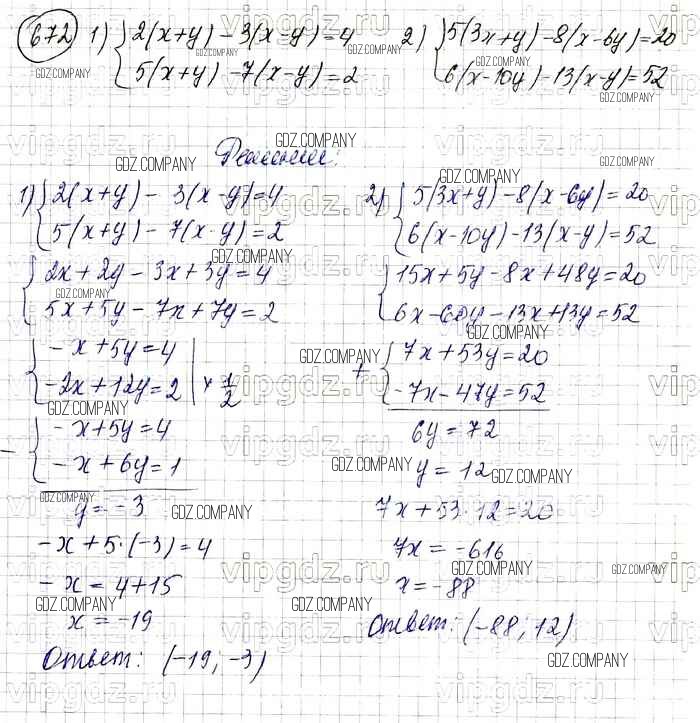 672 1) { 2(x+y) - 3(x-y) = 4
5(x+y) - 7(x-y) = 2
2) { 5(3x+y) - 8(x-6y) = 20
6(x-10y) - 13(x-y) = 52
Решение:
1) { 2(x+y) - 3(x-y) = 4
5(x+y) - 7(x-y) = 2
{ 2x+2y-3x+3y=4
5x+5y-7x+7y=2
{ -x+5y=4
-2x+12y=2 | × 1/2
- { -x+5y=4
-x+6y=1
y=-3
-x+5·(-3)=4
-x=4+15
x=-19
Ответ: (-19; -3)
2) { 5(3x+y) - 8(x-6y) = 20
6(x-10y) - 13(x-y) = 52
{ 15x+5y-8x+48y=20
6x-60y-13x+13y=52
+ { 7x+53y=20
-7x-47y=52
6y=72
y=12
7x+53·12=20
7x=-616
x=-88
Ответ: (-88; 12)
GDZ.COMPANY
vipgdz.ru